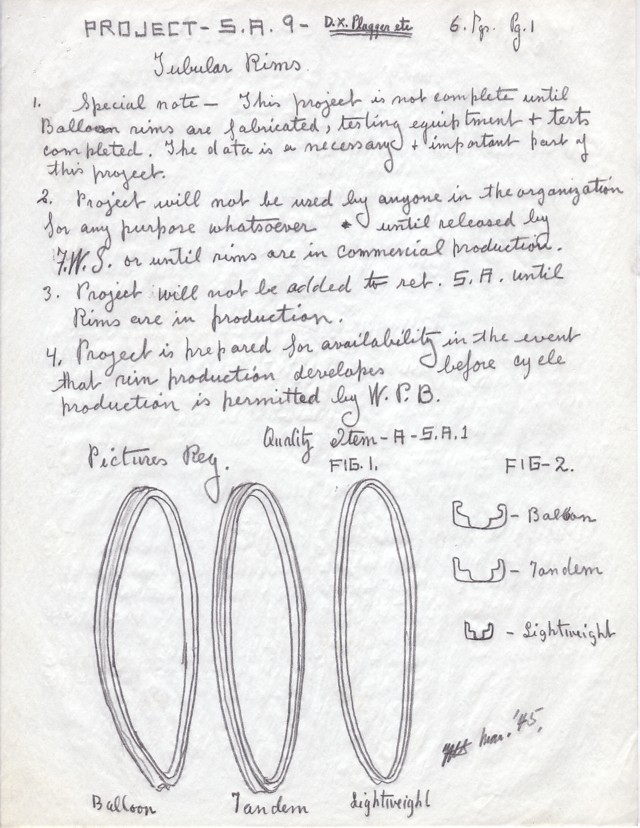 PROJECT- S.A. 9 - D.X. Plagger etc 6. Pgs. Pg. 1
Tubular Rims.
1. Special note - This project is not complete until
Balloon rims are fabricated, testing equiptment + tests
completed. The data is a necessary + important part of
this project.
2. Project will not be used by anyone in the organization
for any purpose whatsoever until released by
F.W.S. or until rims are in commercial production.
3. Project will not be added to ret. S.A. until
Rims are in production.
4. Project is prepared for availability in the event
that rim production developes before cycle
production is permitted by W.P.B.
Quality Item-A-S.A.1
Pictures Req. FIG. 1. FIG-2.
- Balloon
- Tandem
- Lightweight
Mar. '45.
Balloon Tandem Lightweight